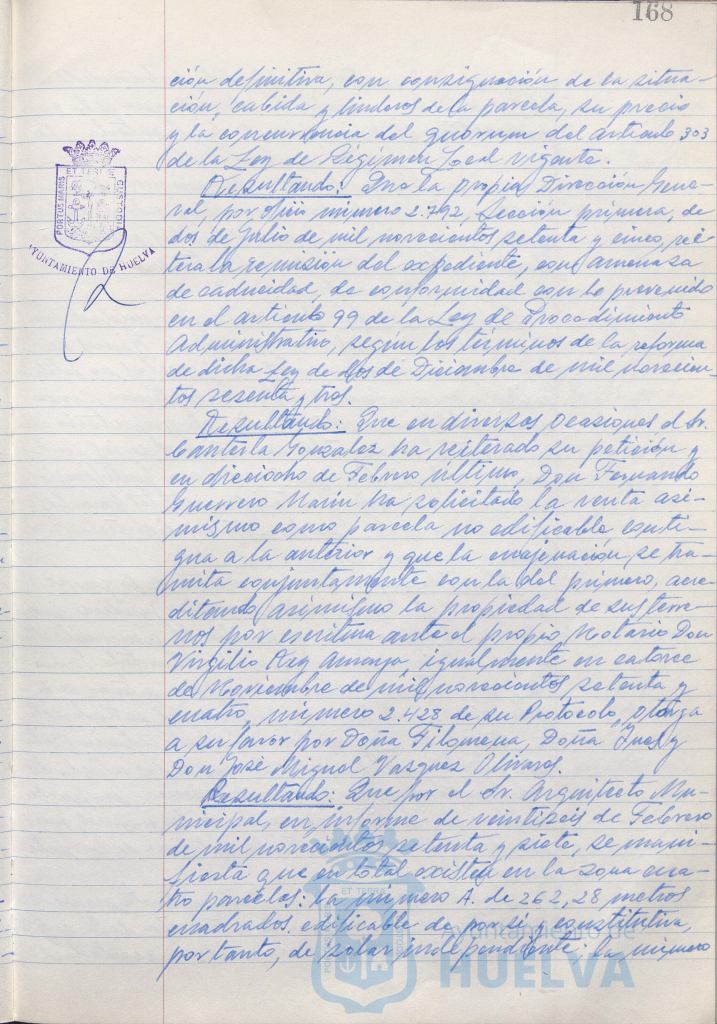 168
ción definitiva, con consignación de la situa-
ción, cabida y linderos de la parcela, su precio
y la concurrencia del quorum del artículo 303
de la Ley de Régimen Local vigente.
Resultando: Que la propia Dirección Gene-
ral, por oficio número 2.792, Sección primera, de
dos de Julio de mil novecientos setenta y cinco, rei-
tera la remisión del expediente, con amenaza
de caducidad, de conformidad con lo prevenido
en el artículo 99 de la Ley de Procedimiento
Administrativo, según los términos de la reforma
de dicha Ley de dos de Diciembre de mil novecien-
tos sesenta y tres.
Resultando: Que en diversas ocasiones el Sr.
Canterla Gonzalez ha reiterado su petición y
en dieciocho de Febrero último, Don Fernando
Guerrero Marín ha solicitado la venta asi-
mismo como parcela no edificable conti-
gua a la anterior y que la enajenación se tra-
mita conjuntamente con la del primero, acre-
ditando asimismo la propiedad de sus terre-
nos por escritura ante el propio Notario Don
Virgilio Rey Amaya, igualmente en catorce
de Noviembre de mil novecientos setenta y
cuatro, número 2.428 de su Protocolo, otorga
a su favor por Doña Filomena, Doña Inés y
Don José Miguel Vazquez Olivares.
Resultando: Que por el Sr. Arquitecto Mu-
nicipal, en informe de veintiseis de Febrero
de mil novecientos setenta y siete, se mani-
fiesta que en total existen en la zona cua-
tro parcelas: la número A. de 262,28 metros
cuadrados edificable de por sí y constitutiva,
por tanto, de solar independiente; la número
PORTUS MARIS
ET TERRE
CUSTODIA
AYUNTAMIENTO DE HUELVA
ET TERRE
Ayuntamiento de
HUELVA